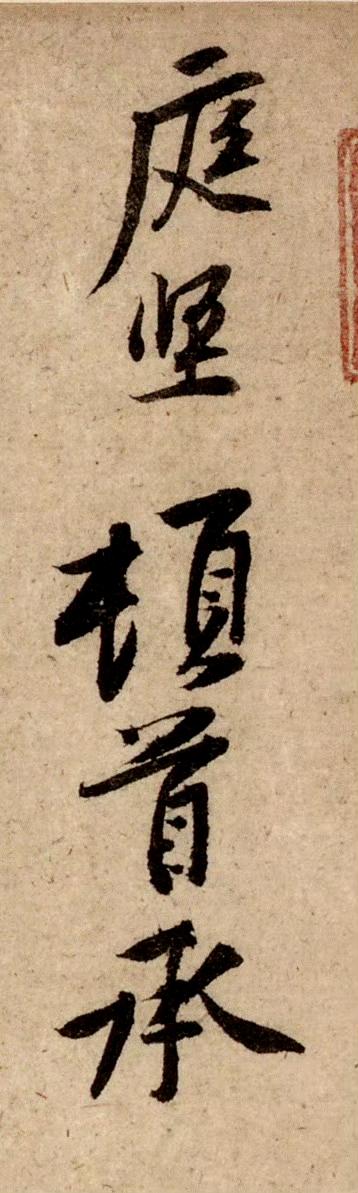 庭坚頓首承